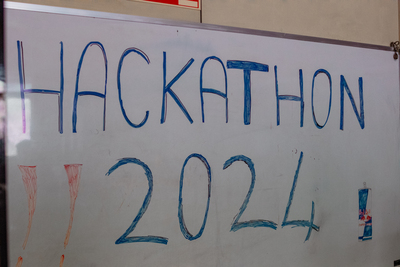 HACKATHON
!! 2024 !